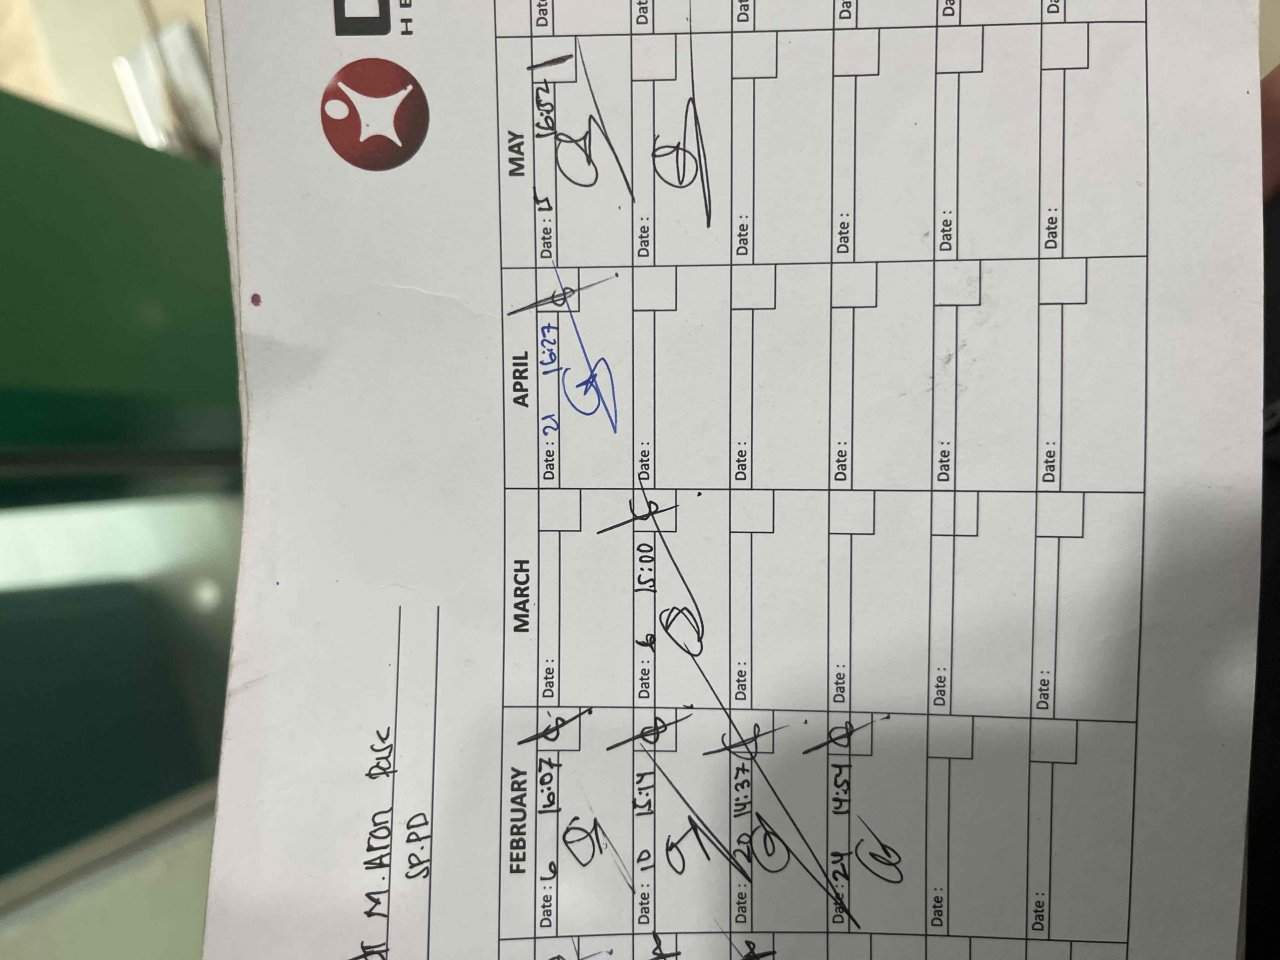 M. Aron Pasc
SP.PD
FEBRUARY MARCH APRIL MAY
Date : 6 16:07 Date : Date : 21 16:27 Date : 15 16:52
Date : 10 15:14 Date : 6 15:00 Date : Date :
Date : 20 14:37 Date : Date : Date :
Date : 24 14:54 Date : Date : Date :
Date : Date : Date : Date :
Date : Date : Date : Date :